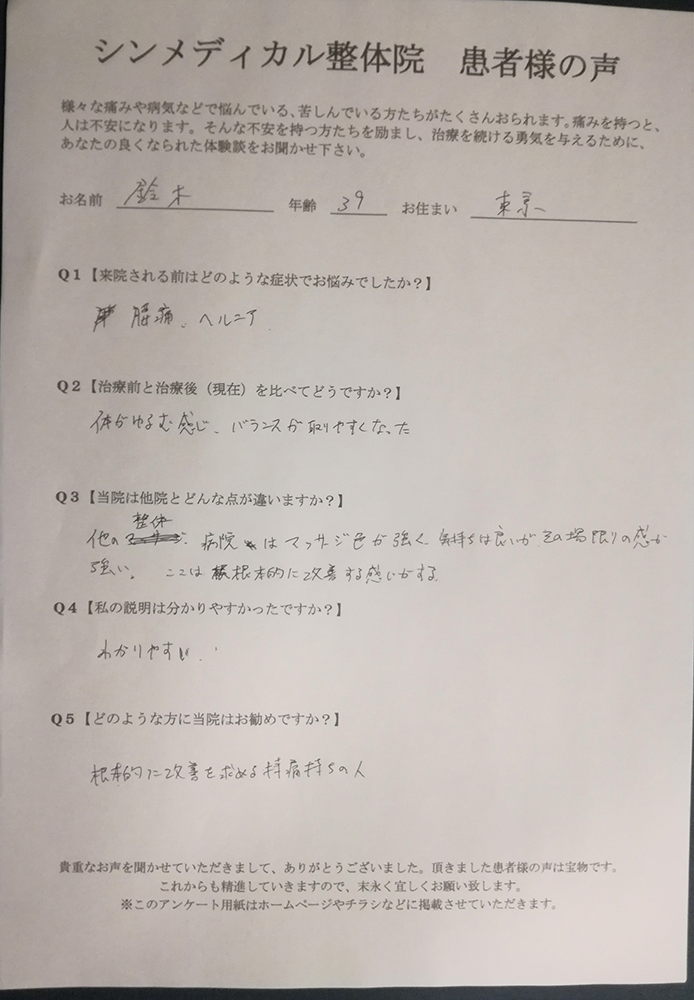 シンメディカル整体院 患者様の声
様々な痛みや病気などで悩んでいる、苦しんでいる方たちがたくさんおられます。痛みを持つと、
人は不安になります。そんな不安を持つ方たちを励まし、治療を続ける勇気を与えるために、
あなたの良くなられた体験談をお聞かせ下さい。
お名前 鈴木 年齢 39 お住まい 東京
Q1【来院される前はどのような症状でお悩みでしたか？】
腰痛、ヘルニア
Q2【治療前と治療後（現在）を比べてどうですか？】
体がゆるむ感じ、バランスが取りやすくなった
Q3【当院は他院とどんな点が違いますか？】
整体
他の 病院はマッサージ色が強く、気持ちは良いが、その場限りの感が
強い。 ここは根本的に改善する感じがする
Q4【私の説明は分かりやすかったですか？】
わかりやすい、
Q5【どのような方に当院はお勧めですか？】
根本的に改善を求める持病持ちの人
貴重なお声を聞かせていただきまして、ありがとうございました。頂きました患者様の声は宝物です。
これからも精進していきますので、末永く宜しくお願い致します。
※このアンケート用紙はホームページやチラシなどに掲載させていただきます。